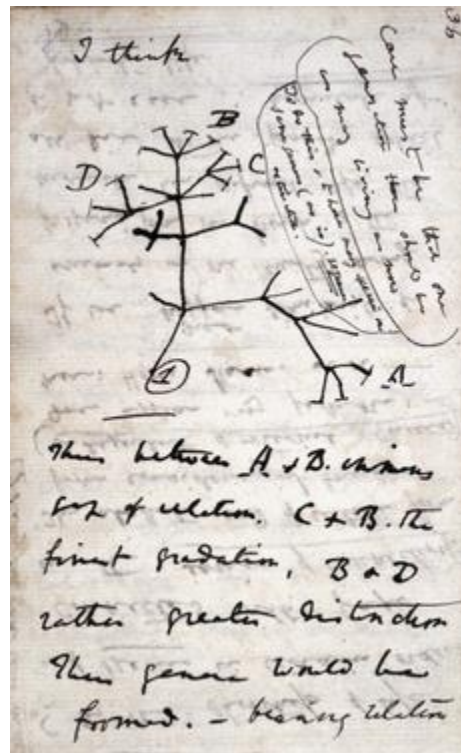 36
I think
Case must be that one
generation then should be
as many living as now
To do this & to have many species in
same genus (as is) requires
extinction.
B
D
C
A
1
Thus between A & B. immens
gap of relation. C & B. the
finest gradation, B & D
rather greater distinction
Thus genera would be
formed. – bearing relation